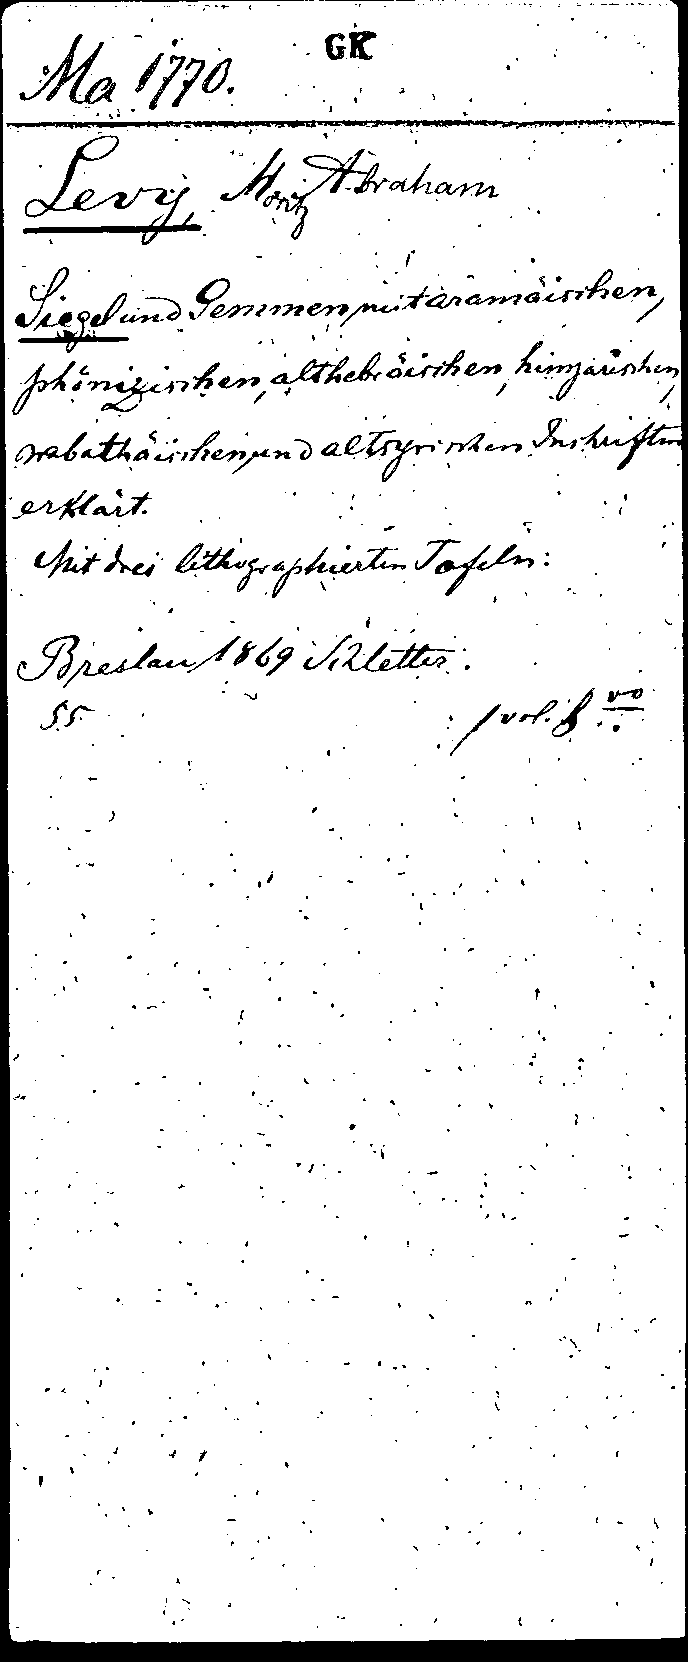 GK
Ma 1770.
Levy, Moritz Abraham
Siegel und Gemmen mit aramäischen,
phönizischen, althebräischen, himjarischen,
nabathäischen und altsyrischen Inschriften
erklärt.
Mit drei lithographierten Tafeln.
Breslau 1869 Schletter.
55 1 vol. 8 vo